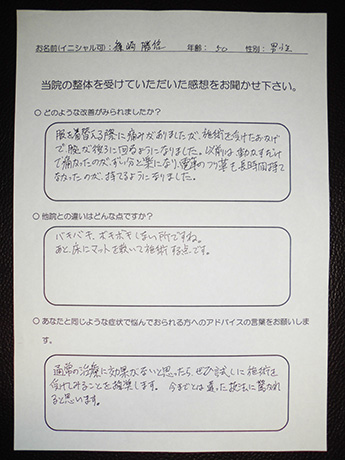 お名前(イニシャル可):篠崎 勝信 年齢: 50 性別: 男性
当院の整体を受けていただいた感想をお聞かせ下さい。
○ どのような改善がみられましたか?
服を着替える際に痛みがありましたが、施術を受けたおかげ
で腕が後ろに回るようになりました。以前は、動かすだけ
で痛かったのが、ずい分と楽になり、電車のつり革も長時間持て
なかったのが、持てるようになりました。
○ 他院との違いはどんな点ですか?
バキバキ、ボキボキしない所ですね。
あと、床にマットを敷いて施術する点です。
○ あなたと同じような症状で悩んでおられる方へのアドバイスの言葉をお願いしま
す。
通常の治療に効果がないと思ったら、ぜひ試しに施術を
受けてみることを推奨します。今までとは違った技法に驚かれ
ると思います。